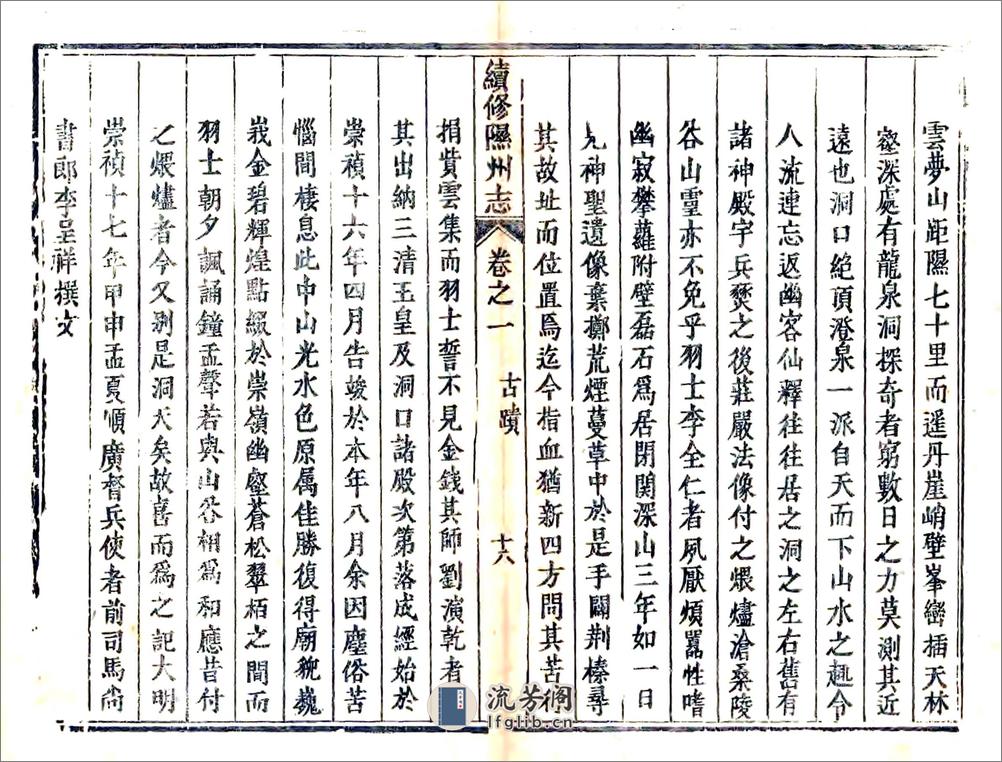 雲夢山距隰七十里而遥丹崖峭壁峯巒插天林
壑深處有龍泉洞探奇者窮數日之力莫測其近
遠也洞口絕頂澄泉一派自天而下山水之趣令
人流連忘返幽客仙釋往往居之洞之左右舊有
諸神殿宇兵燹之後莊嚴法像付之煨燼滄桑陵
谷山靈亦不免乎羽士李全仁者夙厭煩囂性嗜
幽寂攀蘿附壁磊石爲居閉関深山三年如一日
凡神聖遺像棄擲荒煙蔓草中於是手闢荆榛尋
其故址而位置焉迄今指血猶新四方問其苦
續修隰州志 卷之一 古蹟 十六
捐貲雲集而羽士誓不見金錢其師劉演乾者
其出納三清玉皇及洞口諸殿次第落成經始於
崇禎十六年四月告竣於本年八月余因塵俗苦
惱間棲息此中山光水色原属佳勝復得廟貌巍
峩金碧輝煌點綴於崇嶺幽壑蒼松翠栢之間而
羽士朝夕諷誦鐘孟聲若與山谷相爲和應昔付
之煨燼者今又別是洞天矣故喜而爲之記大明
崇禎十七年甲申孟夏順廣督兵使者前司馬尚
書郎李呈祥撰文
流芳阁
lfglib.cn